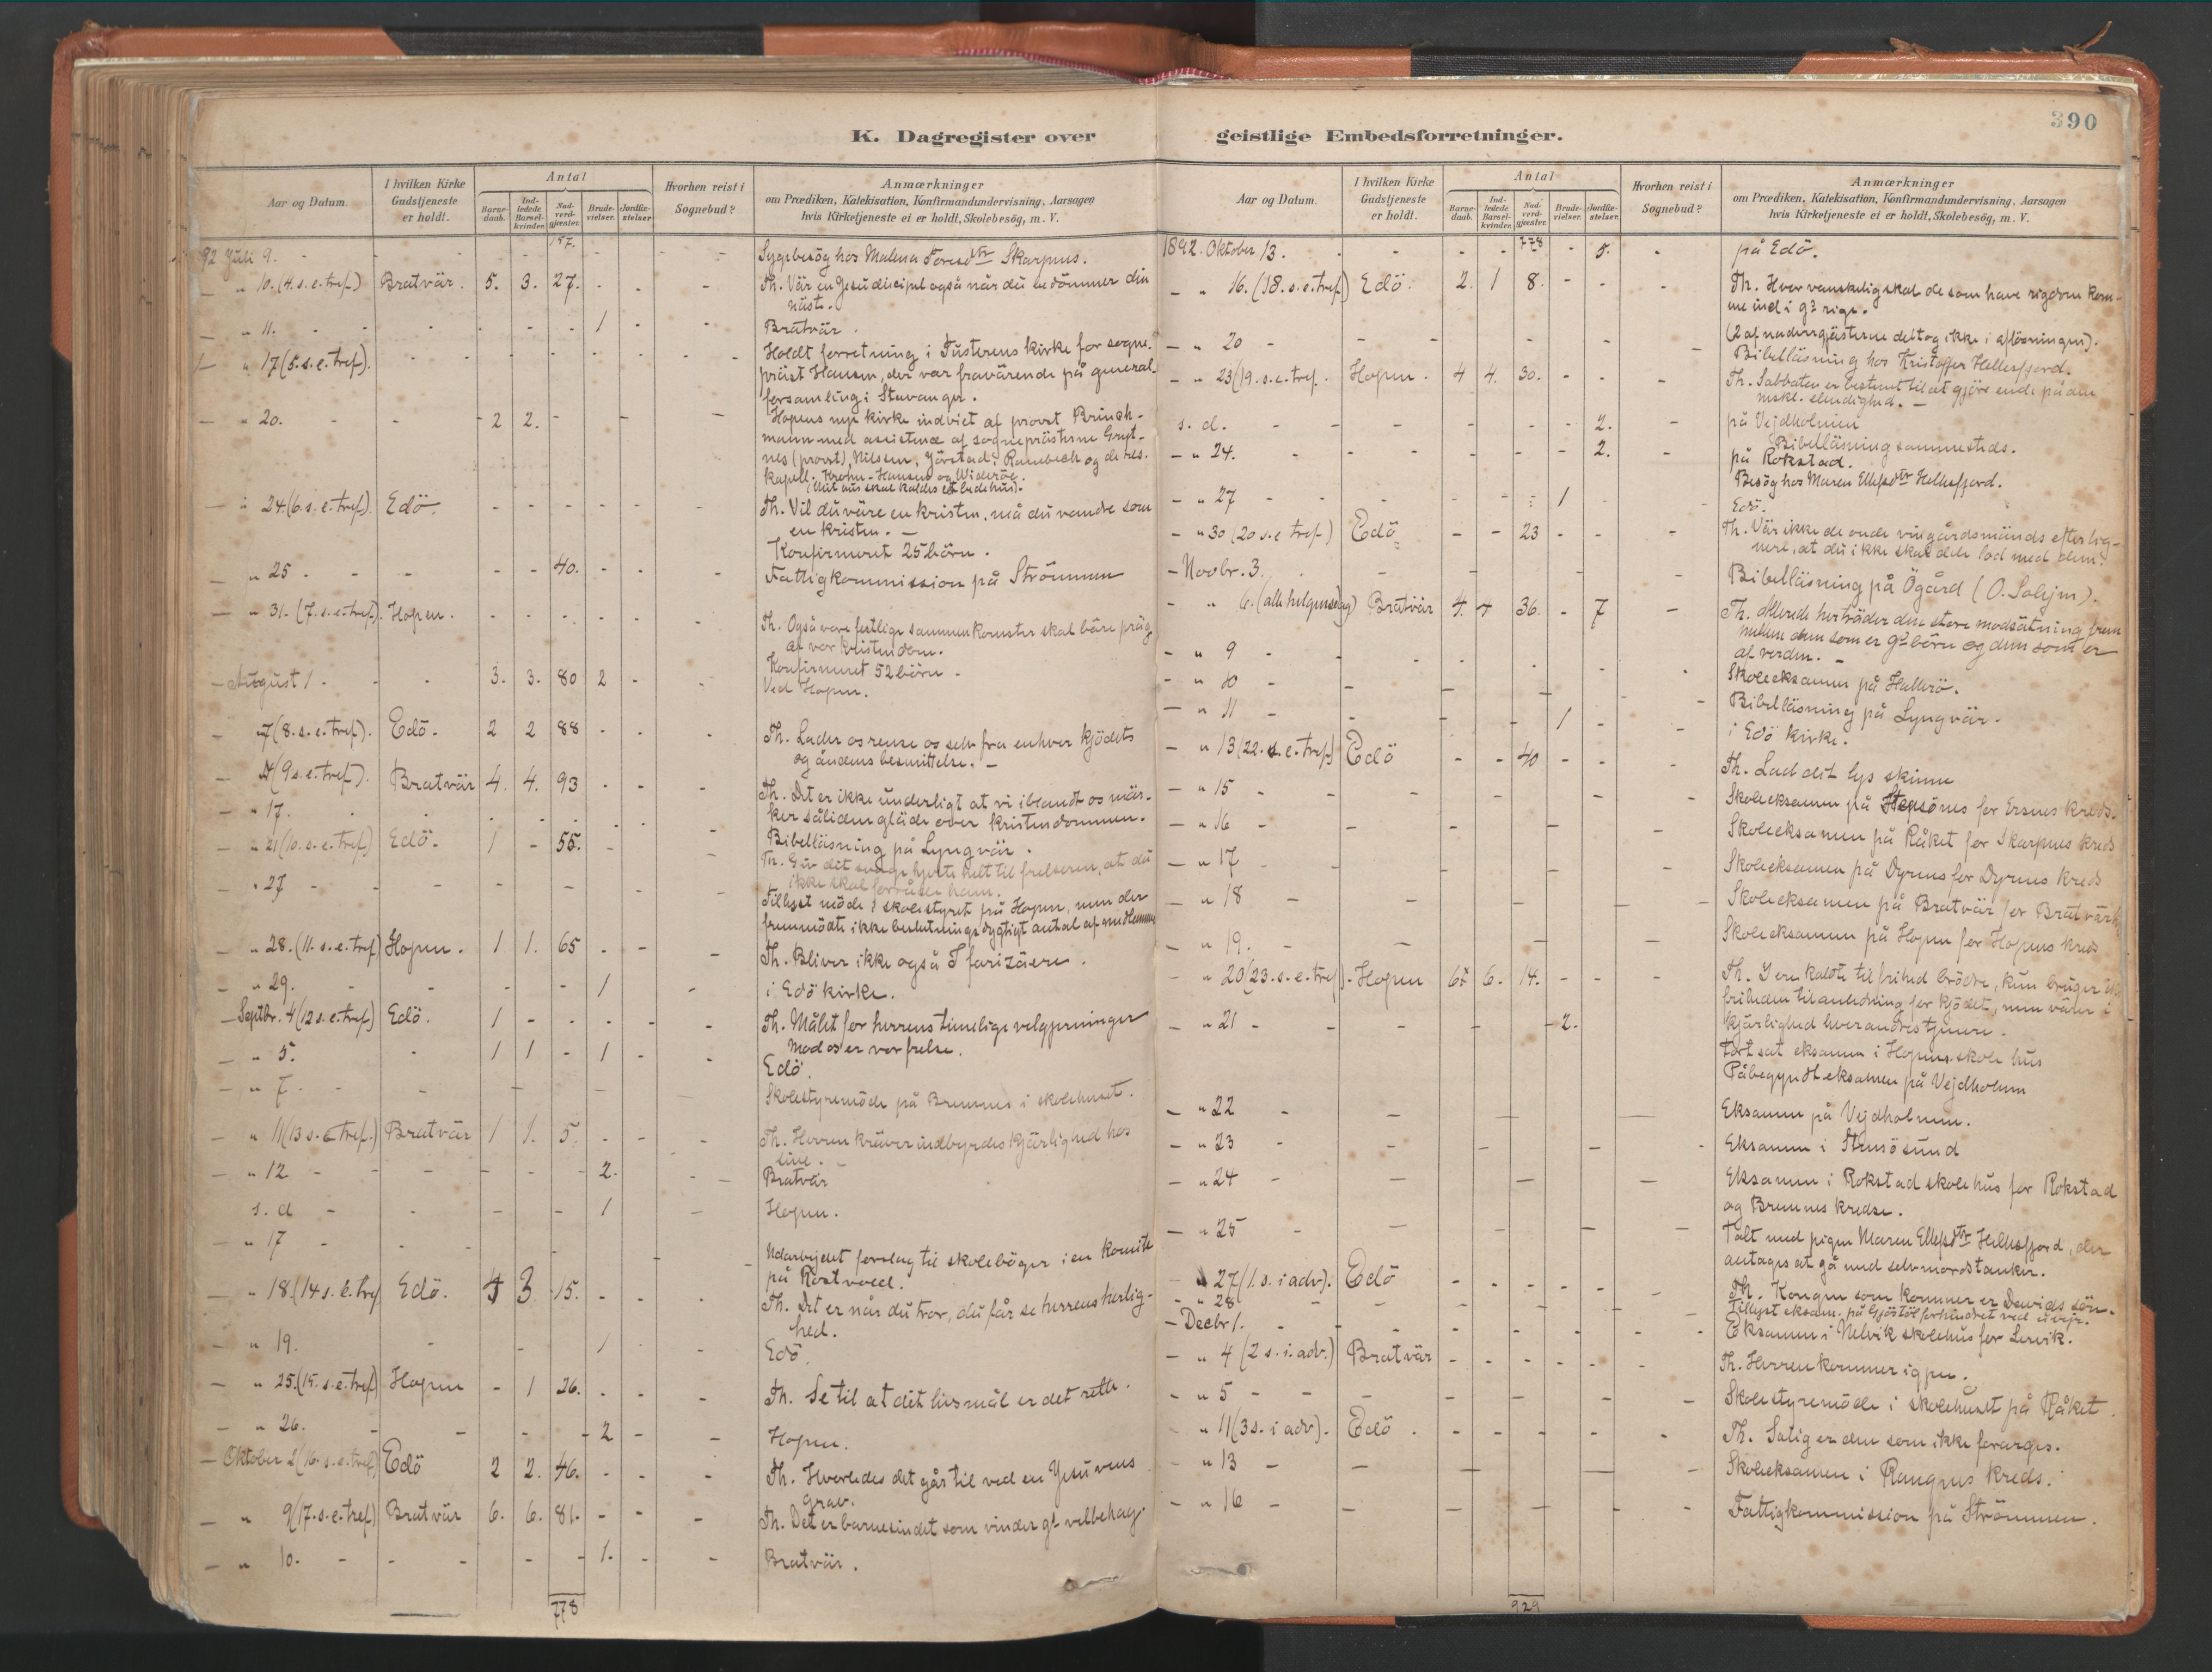 390
K. Dagregister over
Aar og Datum. I hvilken Kirke Gudstjeneste er holdt. Antal Barnedaab. Indledede Barselkvinder. Nadverdgjester. Brudevielser. Jordfæstelser. Hvorhen reist i Sognebud? Anmærkninger om Prædiken, Katekisation, Konfirmandundervisning, Aarsagen hvis Kirketjeneste ei er holdt, Skolebesøg, m. V.
157.
92 Juli 9. - - - - - - - Sygebesög hos Malena Skarpnes.
— " 10. (4. s. e. tref.) Bratvär. 5. 3. 27. - - - Th. Vär en Jesu discipel også når du bedömmer din
näste.
— " 11. - - - - - 1 - - Bratvär.
— " 17 (5. s. e. tref.). - - - - - - - Holdt forretning i Tusterens kirke for sogne-
präst Hansen, der var fraværende på general-
forsamling i Stavanger.
— " 20. - - 2 2. - - - - Hopens nye kirke indviet af provst Brinch-
mann med assistence af sogneprästerne
nes (provst), Nilsen, Jörstad, Rambech og de res.
kapell. Krohn-Hansen og Wideröe.
— " 24. (6. s. e. tref.) Edö. - - - - - - Th. Vil du väre en kristen, må du vandre som
en kristen. —
Konfirmeret 25 börn.
— " 25 - - - - 40. - - - Fattigkommission på Strömmen
— " 31. (7. s. e. tref.) Hopen. - - - - - - Th. Også vore festlige sammenkomster skal bäre präg
af vor kristendom.
Konfirmeret 52 börn.
— August 1 - - 3. 3. 80 2 - - Ved Hopen.
— 7 (8. s. e. tref.). Edö. 2 2 88 - - - Th. Lader os rense os selv fra enhver kjödets
og åndens besmittelse. —
— (9 s. e. tref.). Bratvär 4. 4. 93 - - - Th. Det er ikke underligt at vi iblandt os mär-
ker så liden gläde over kristendommen.
— " 17. - - - - - - - Bibelläsning på Lyngvär.
— " 21 (10. s. e. tref.) Edö. 1 - 55. - - - Th. Giv dit hjerte helt til frelseren, at du
ikke skal forråde ham.
— " 27 - - - - - - - Tillyst möde i skolestyret på Hopen, men der
fremmödte ikke beslutningsdygtigt antal af medlemmer
— " 28. (11. s. e. tref.) Hopen. 1 1. 65 - - - Th. Bliver ikke også I farizäere.
— " 29. - - - - 1 - i Edö kirke.
— Septbr. 4 (12 s. e. tref.) Edö. 1 - - - - - Th. Målet for herrens timelige velgjerninger
mod os er vor frelse.
— " 5. - 1 1 - 1 - - Edö.
— " 7. - - - - Skolestyremöde på Bremnes i skolehuset.
— " 11 (13 s. e. tref.) Bratvär 1 1. 5. - - - Th. Herren kräver indbyrdes kjärlighed hos
sine. —
— " 12 - - - - - 2. - - Bratvär
s. d - - - - 1 - Hopen.
— " 17 - - - - - - Udarbejdet forslag til skolebøger i en komite
på Rostvold.
— " 18. (14 s. e. tref Edö. 4 3 15. - - - Th. Det er når du tror, du får se herrens herlig-
hed.
— " 19. - - 1 - Edö.
— " 25. (15. s. e. tref) Hopen - 1 26. - - - Th. Se til at dit livsmål er det rette.
— " 26. - - - - 2 - - Hopen.
— Oktober 2 (16. s. e. tref) Edö 2 2. 46. - - - Th. Hvorledes det går til ved en Jesu vens
grav.
— " 9 (17. s. e. tref) Bratvär 6. 6. 81. - - - Th. Det er barnesindet som vinder gs velbehag.
— " 10. - - - - - 1. - - Bratvär.
778
geistlige Embedsforretninger.
Aar og Datum. I hvilken Kirke Gudstjeneste er holdt. Antal Barnedaab. Indledede Barselkvinder. Nadverdgjester. Brudevielser. Jordfæstelser. Hvorhen reist i Sognebud? Anmærkninger om Prædiken, Katekisation, Konfirmandundervisning, Aarsagen hvis Kirketjeneste ei er holdt, Skolebesøg, m. V.
1892. Oktober 13. - - - - 778 - 5. - på Edö.
— " 16. (18. s. e. tref) Edö. 2. 1 8. - - - Th. Hvor vanskelig skal de som have rigdom kom-
me ind i gs rige.
(2 af nadvergjästerne deltog ikke i aflösningen).
— " 20 - - - - - - Bibelläsning hos Kristoffer Hellesfjord.
— " 23 (19. s. e. tref. Hopen. 4 4. 30. - - - Th. Sabbaten er bestemt til at gjöre ende på den
mskl. elendighed. —
s. d. - - - - - - 2. - på Vejdholmen
Bibelläsning sammesteds.
— " 24. - - - - - - 2. på Rokstad.
Besög hos Maren Ellefsdtr Hellesfjord.
— " 27 - - - - 1 - Edö.
— " 30 (20 s. e tref.) Edö - - 23 - - - Th. Vär ikke de onde vingårdsmänds efterlig-
nere, at du ikke skal dele lod med dem!
— Novbr. 3. - - - - - Bibelläsning på Ögård (O. Solejm).
— " 6. (alle helgensdag) Bratvär 4. 4 36. - 7 - Th. Allerede her träder den store modsätning frem
mellem dem som er gs börn og dem som er
af verden. —
— " 9 - - - - - - - Skoleeksamen på Hallerö.
— " 10 - - - - - - Bibelläsning på Lyngvär.
— " 11 - - - - 1 - - i Edö kirke.
— " 13 (22. s. e. tref) Edö - - 40 - - - Th. Lad dit lys skinne
— " 15 - - - - - - Skoleeksamen på Stensönes for Ersnes kreds.
— " 16 - - - - - Skoleeksamen på Råket for Skarpnes kreds
— " 17 - - - - Skoleeksamen på Dyrnes for Dyrnes kreds
— " 18 - - - - - Skoleeksamen på Bratvär for Bratvär
— " 19. - - - - Skoleeksamen på Hopen for Hopens kreds
— " 20 (23. s. e. tref). Hopen 6. 14. - - - Th. I ere kaldte til frihed brödre, kun bruger
friheden til anledning for kjödet, men värer i
kjärlighed hverandres tjenere.
— " 21 - - - - - 2. Fortsat eksamen i Hopens skolehus
Påbegyndt eksamen på Vejdholmen
— " 22 - - - - Eksamen på Vejdholmen.
— " 23 - - - - Eksamen i Stensösund
— " 24 - - - - Eksamen i Rokstad skolehus for Rokstad
og Bremnes kredse.
— " 25 - - - - - Talt med pigen Maren Ellefsdtr Hellesfjord, der
antages at gå med selvmordstanker.
— " 27 (1. s. i adv). Edö - - - - - - Th. Kongen som kommer er Davids sön.
— " 28 - - - - - Tillyst eksam. på Gjöstöl forhindret ved uvejr.
— Decbr 1. - - - - - - - Eksamen i Nelvik skolehus for Lervik.
— " 4 (2 s. i. adv.) Bratvär - - - - - - Th. Herren kommer igjen.
— " 5 - - - - - - Skolestyremöde i skolehuset på Råket.
— " 11 (3 s. i adv). Edö. - - - - - - Th. Salig er den som ikke forarges.
— " 13 - - - - - Skoleeksamen i Rangnes kreds.
— " 16 - - - - - - Fattigkommission på Strömmen.
929